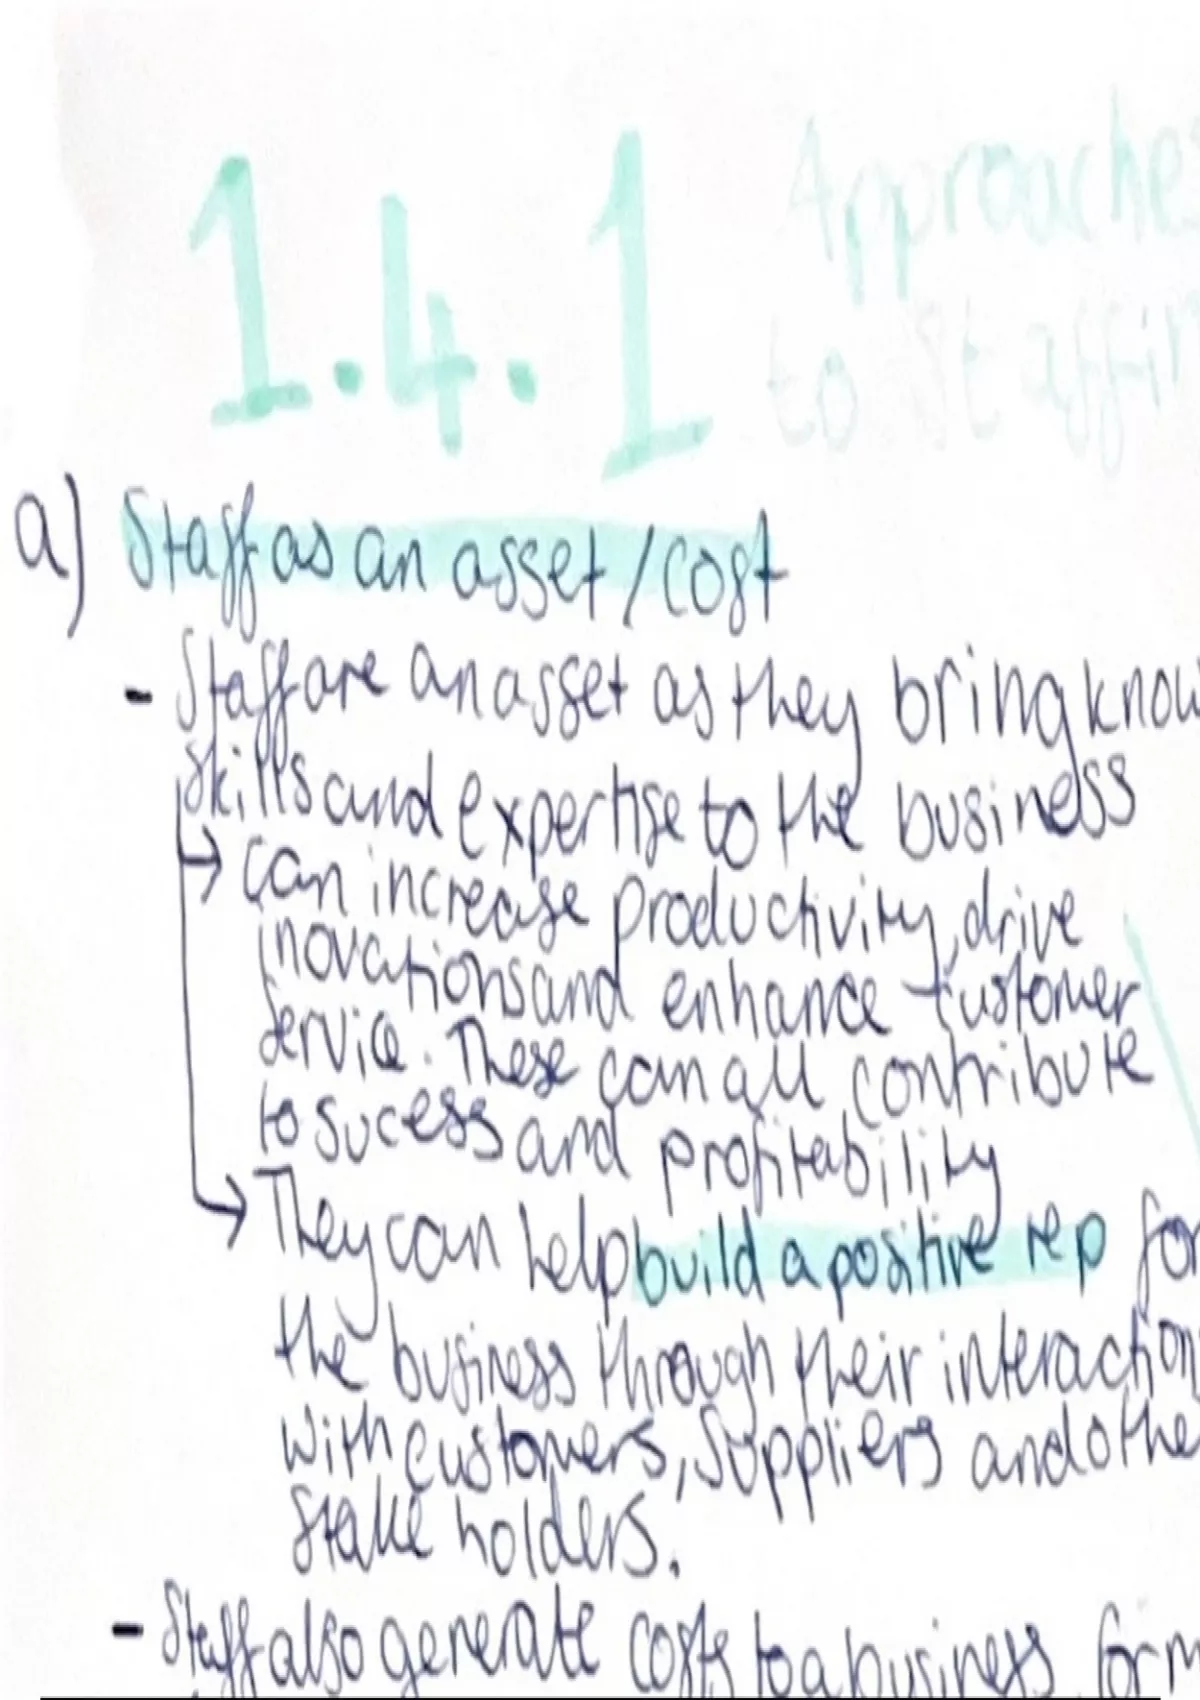 1.4.1 Approaches
to Staffin
a) Staff as an asset / cost
- Staff are an asset as they bring know
skills and expertise to the business
→ can increase productivity, drive
inovations and enhance customer
service. These can all contribute
to sucess and profitability
→ They can help build a positive rep for
the business through their interaction
with customers, suppliers and othe
stake holders.
- Staff also generate costs to a business form